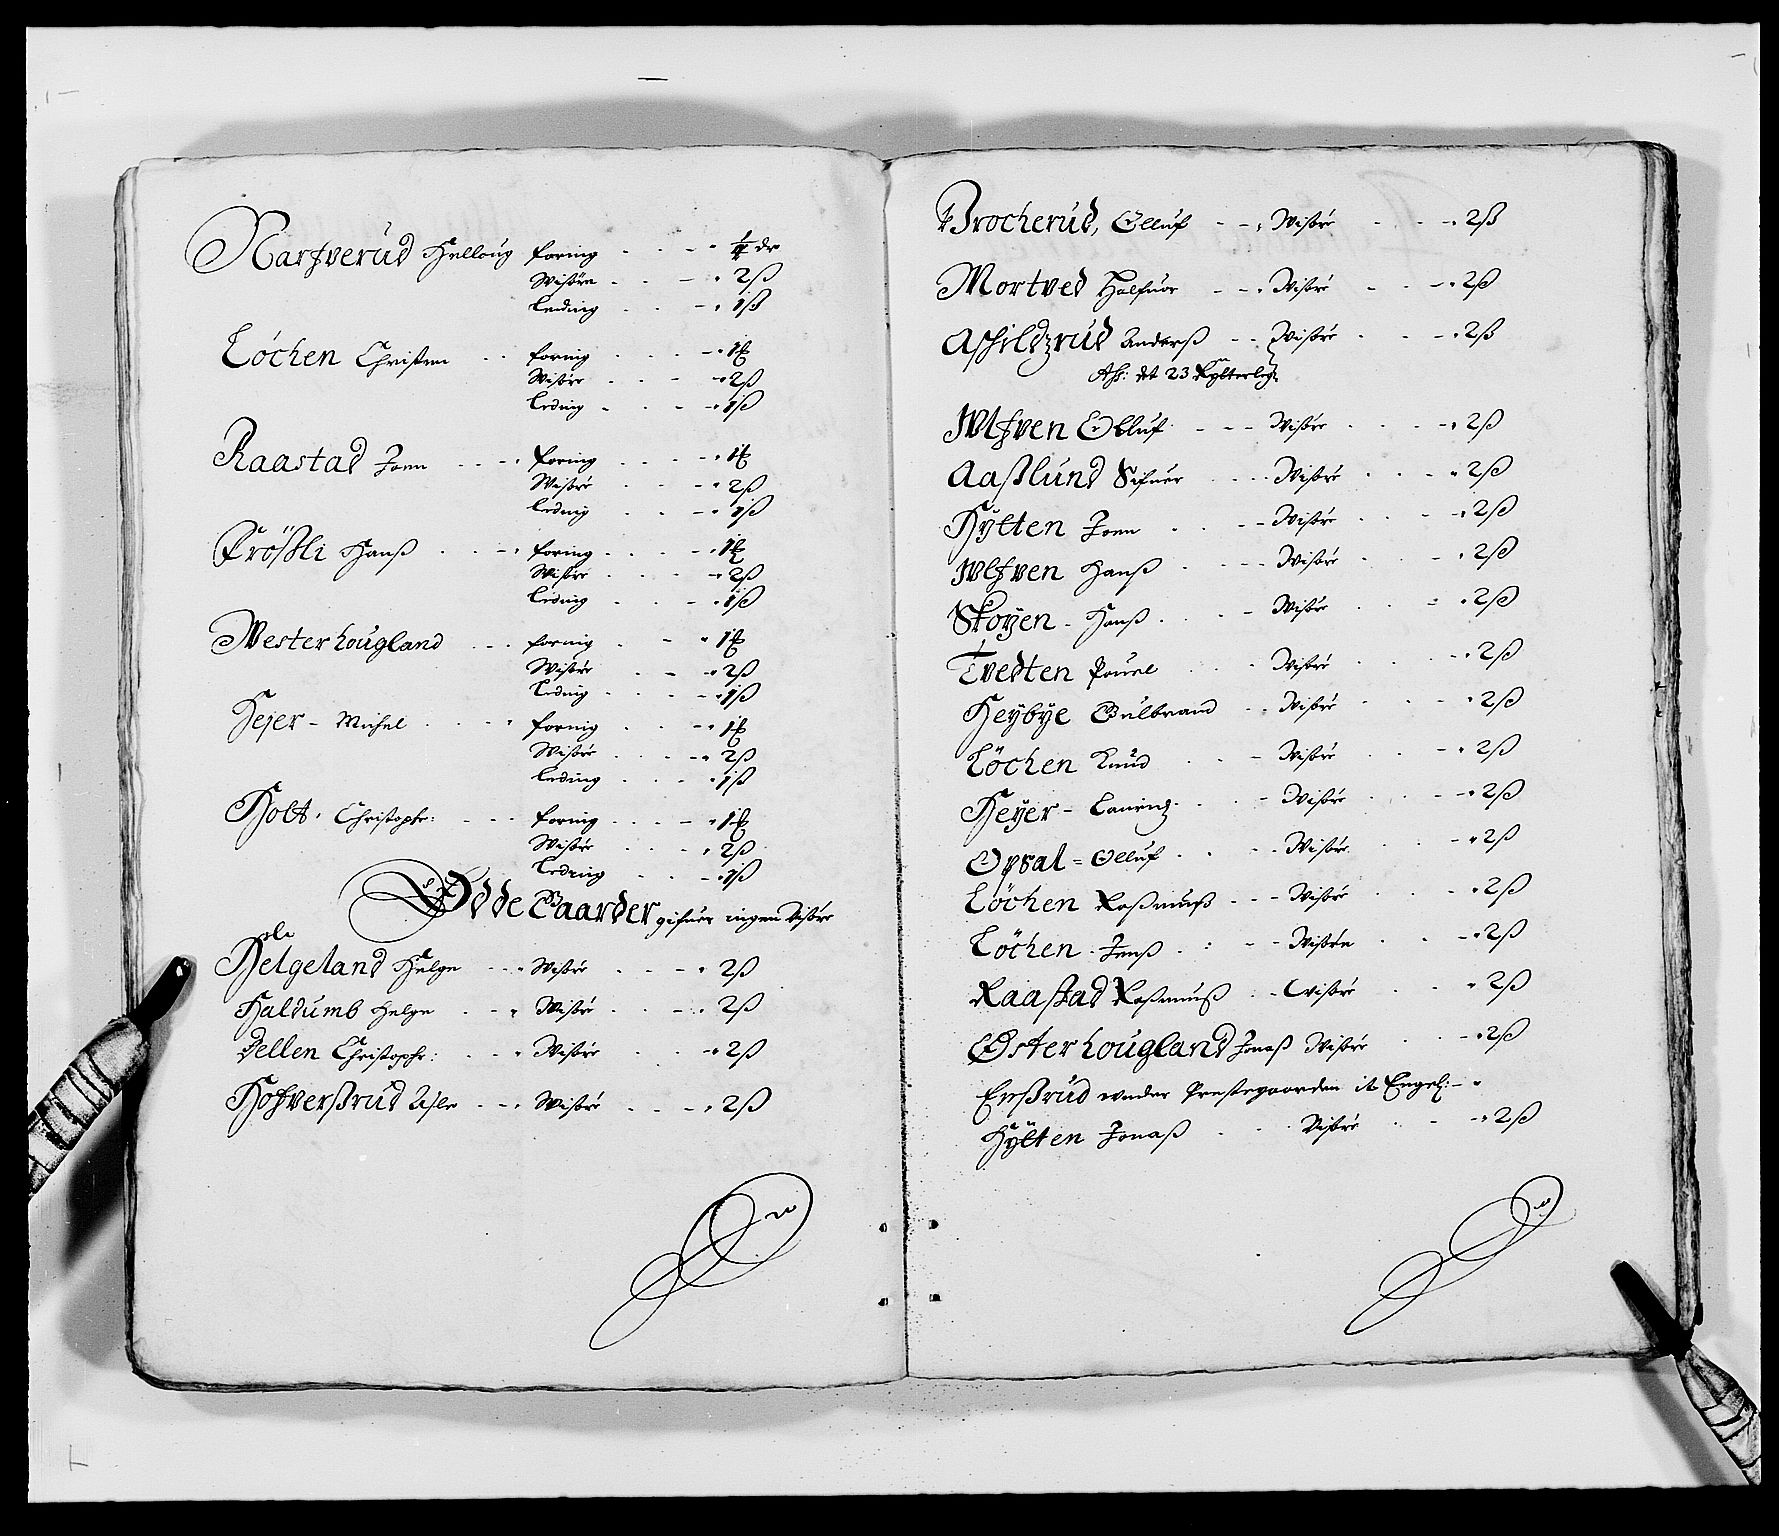 Narfverud Helloug foring - - - - ¼ dr
Wisöre - - - 2ß
Leding - - - 1ß
Löchen Christen - - foring - - - 1
Wisöre - - - 2ß
Leding - - - 1ß
Raastad Joen - - - foring - - - 1
Wisöre - - - 2ß
Leding - - - 1ß
Frößli Hanß - - - foring - - - 1
Wisöre - - - 2ß
Leding - - - 1ß
Westerhougland - - - foring - - - 1
Wisöre - - - 2ß
Leding - - - 1ß
Hejer - Michel - - - foring - - - 1
Wisöre - - - 2ß
Leding - - - 1ß
Holt, Christophr: - - - foring - - - 1
Wisöre - - - 2ß
Leding - - - 1ß
Ödde Gaarder gifuer ingen Visöre
Helgeland Helge - - - Wisöre - - - 2ß
Haldumb Helge - - - Wisöre - - - 2ß
Dellen Christophr: - - - Wisöre - - - 2ß
Hofverßrud Asle - - - Wisöre - - - 2ß
Brocherud, Olluf - - - Wisöre - - - 2ß
Mortved Halfuor - - - Wisöre - - - 2ß
Aschildzrud Anderß - - - Wisöre - - - 2ß
det 23
Ulfven Olluf - - - Wisöre - - - 2ß
Aaßlund Sifuer - - - Wisöre - - - 2ß
Hylten Joen - - - Wisöre - - - 2ß
Ulfven Hanß - - - Wisöre - - - 2ß
Skoyen - Hanß - - - Wisöre - - - 2ß
Tvedten Pouel - - - Wisöre - - - 2ß
Heybye Gulbrand - - - Wisöre - - - 2ß
Löchen Knud - - - Wisöre - - - 2ß
Heyer - Laurindz - - - Wisöre - - - 2ß
Opsal - Olluf - - - Wisöre - - - 2ß
Löchen Raßmuß - - - Wisöre - - - 2ß
Löchen Jenß - - - Wisöre - - - 2ß
Raastad Raßmuß - - - Wisöre - - - 2ß
Østerhougland Jonaß Wisöre - - - 2ß
Enßrud under Prestegaarden it Engesl: -
Hylten Jonaß - - - Visöre - - - 2ß